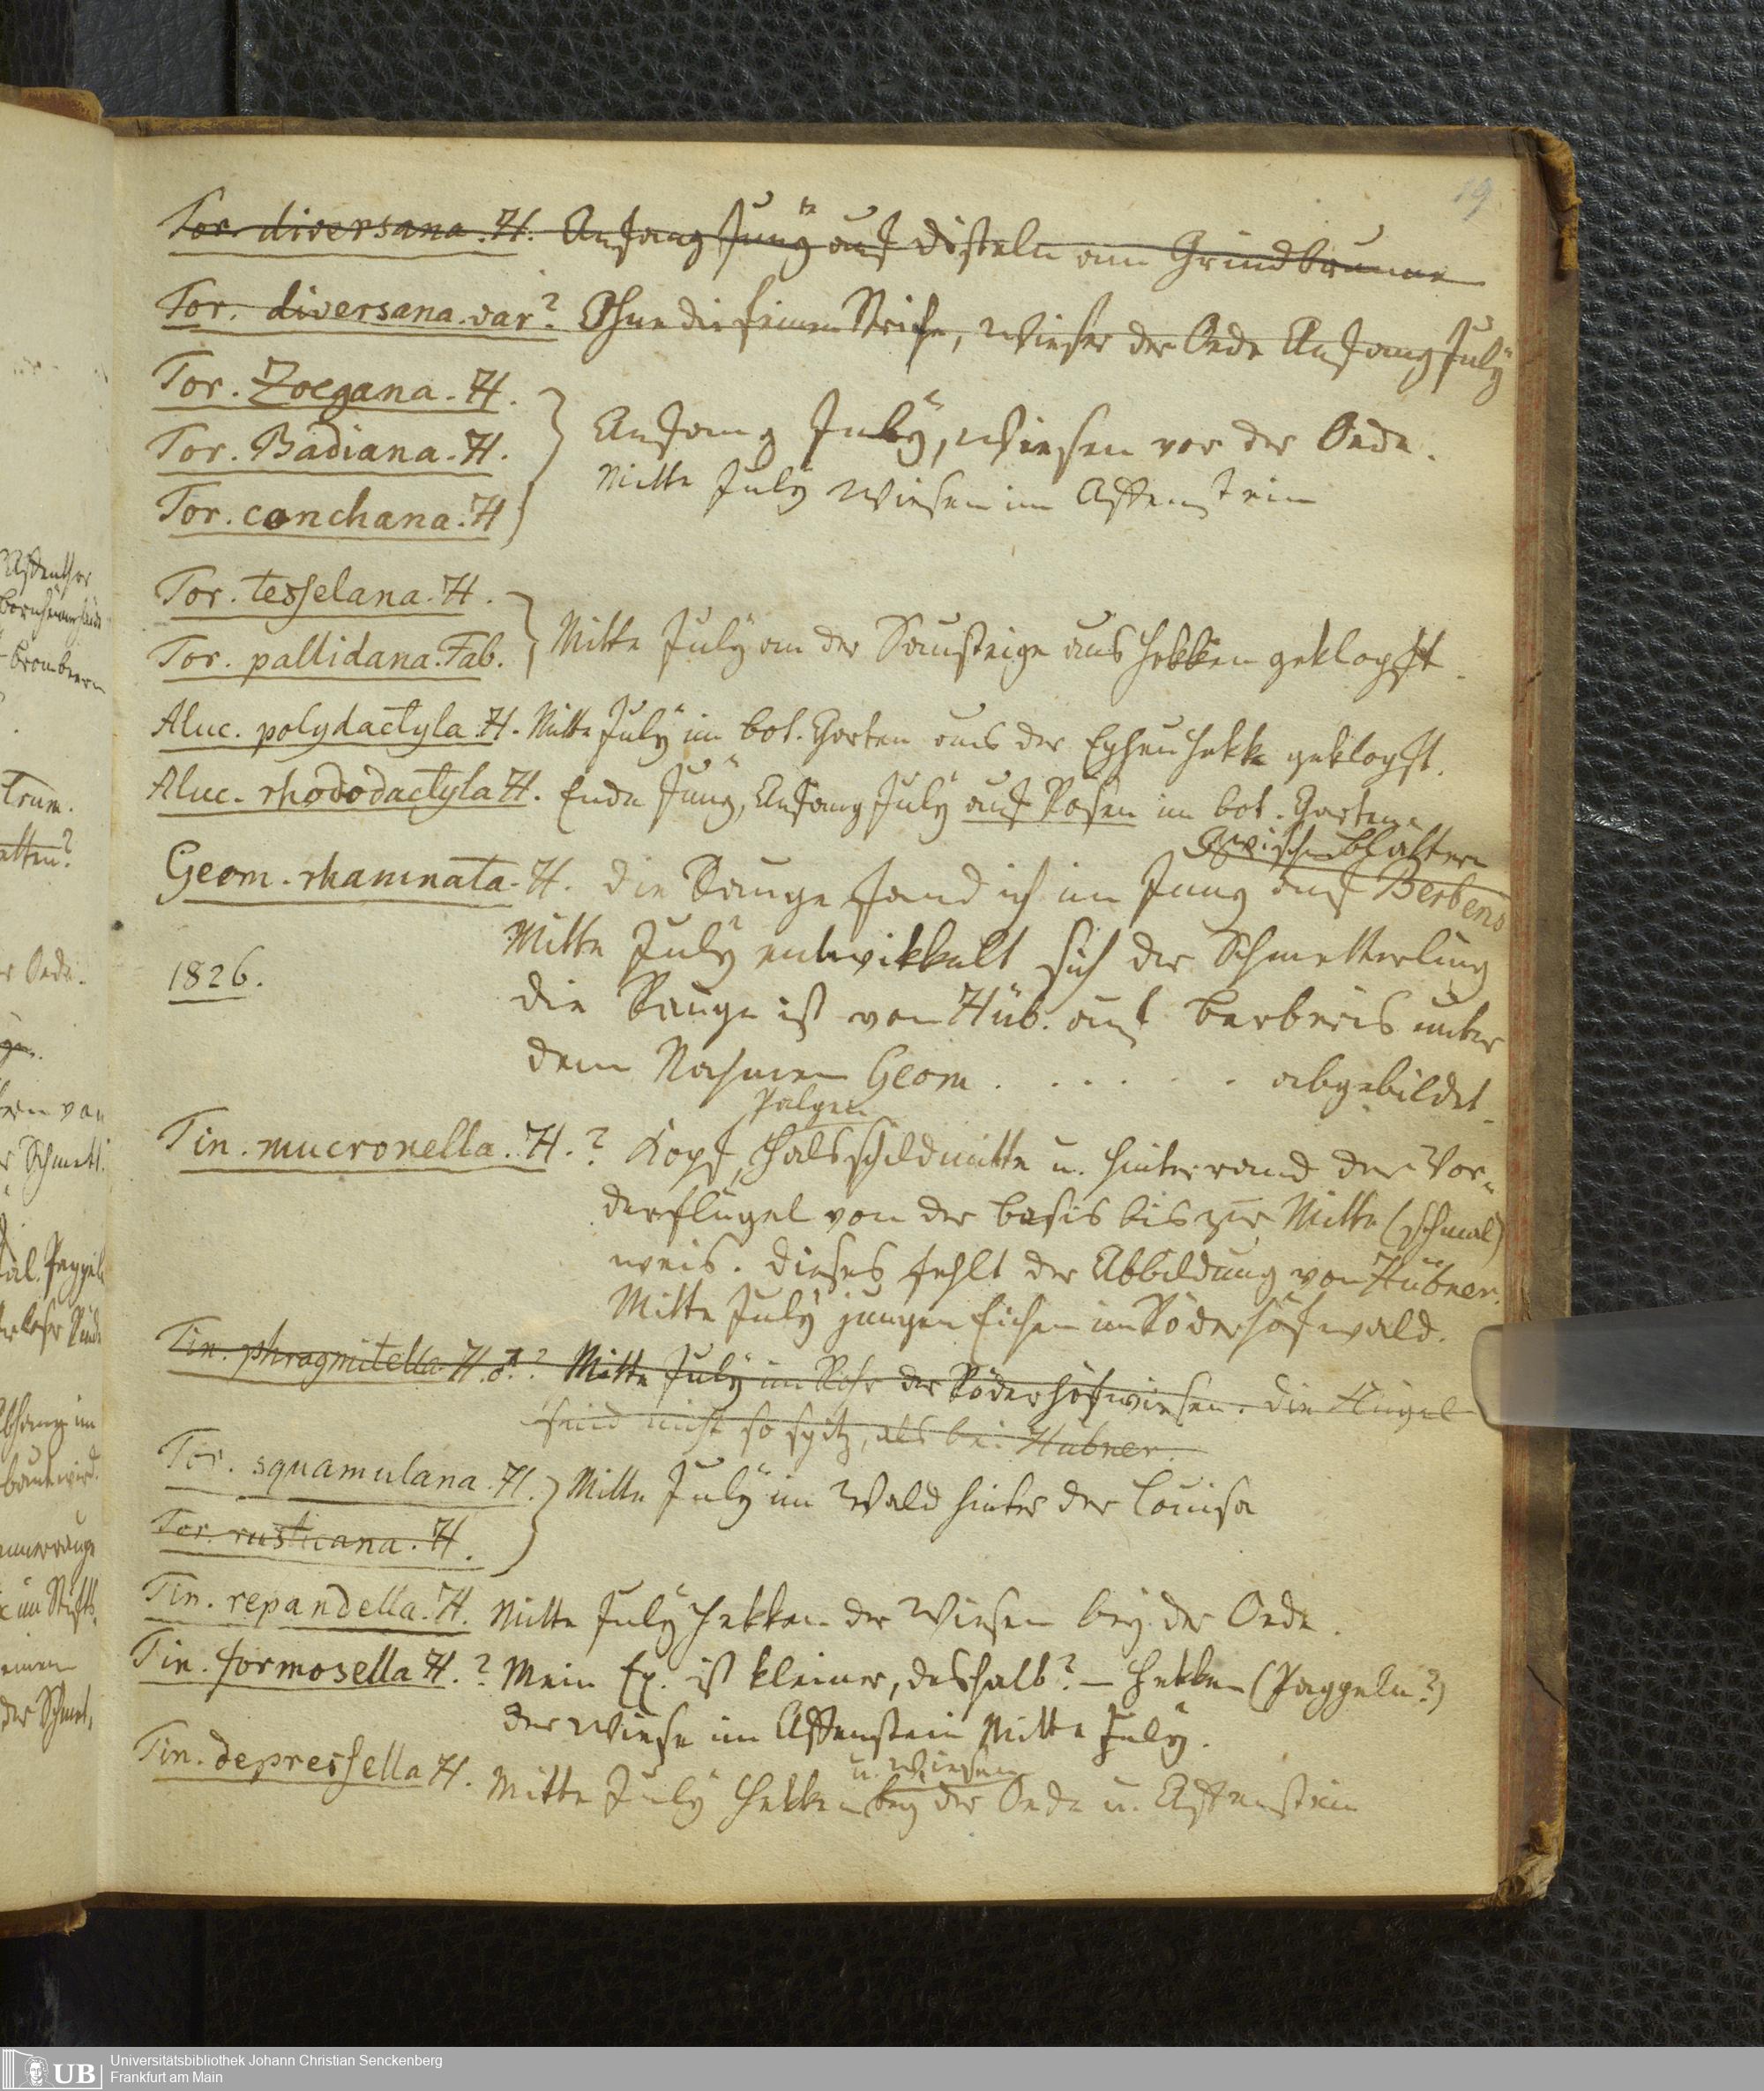 19
Tor. diversana. H. Anfang Juny auf Disteln am Grindbrunne
Tor. diversana. var? Ohne die feinen Striche, Wiese der Oede Anfang July
Tor. Zoegana. H.
Tor. Badiana. H.
Tor. conchana. H
Anfang July, Wiesen vor der Oede.
Mitte July Wiesen im Affenstein
Tor. tesselana. H.
Tor. pallidana. Fab.
Mitte July an der Sausteige aus Hekken geklopft.
Aluc. polydactyla. H. Mitte July im bot. Garten aus der Epheuhekke geklopft.
Aluc. rhododactyla H. Ende Juny, Anfang July auf Rosen im bot. Garten
zwischen Blättern
Geom. rhamnata. H. Die Raupe fand ich im Juny auf Berberis
Mitte July entwikkelt sich der Schmetterling
1826.
Die Raupe ist von Hüb. auf Berberis unter
dem Nahmen Geom . . . . . . abgebildet.
Palpen
Tin. mucronella. H. ? Kopf, Halsschildmitte u. Hinterrand der Vor-
derflügel von der Basis bis zur Mitte (schmal)
weis. Dieses fehlt der Abbildung von Hübner.
Mitte July jungen Eichen im Röderhöfwald.
Tin. phragmitella. H. ♂. ? Mitte July im Rohr der Röderhöfwiesen. Die Flügel
sind nicht so spitz, als bei Hübner.
Tor. squamulana. H.
Tor. rusticana. H.
Mitte July im Wald hinter der Louisa
Tin. repandella. H. Mitte July Hekken der Wiesen bey der Oede.
Tin. formosella H. ? Mein Ex. ist kleiner, deshalb? — Hekken (Pappeln?)
der Wiese im Affenstein Mitte July.
u. Wiesen
Tin. depressella H. Mitte July Hekken bey der Oede u. Affenstein
UB
Universitätsbibliothek Johann Christian Senckenberg
Frankfurt am Main